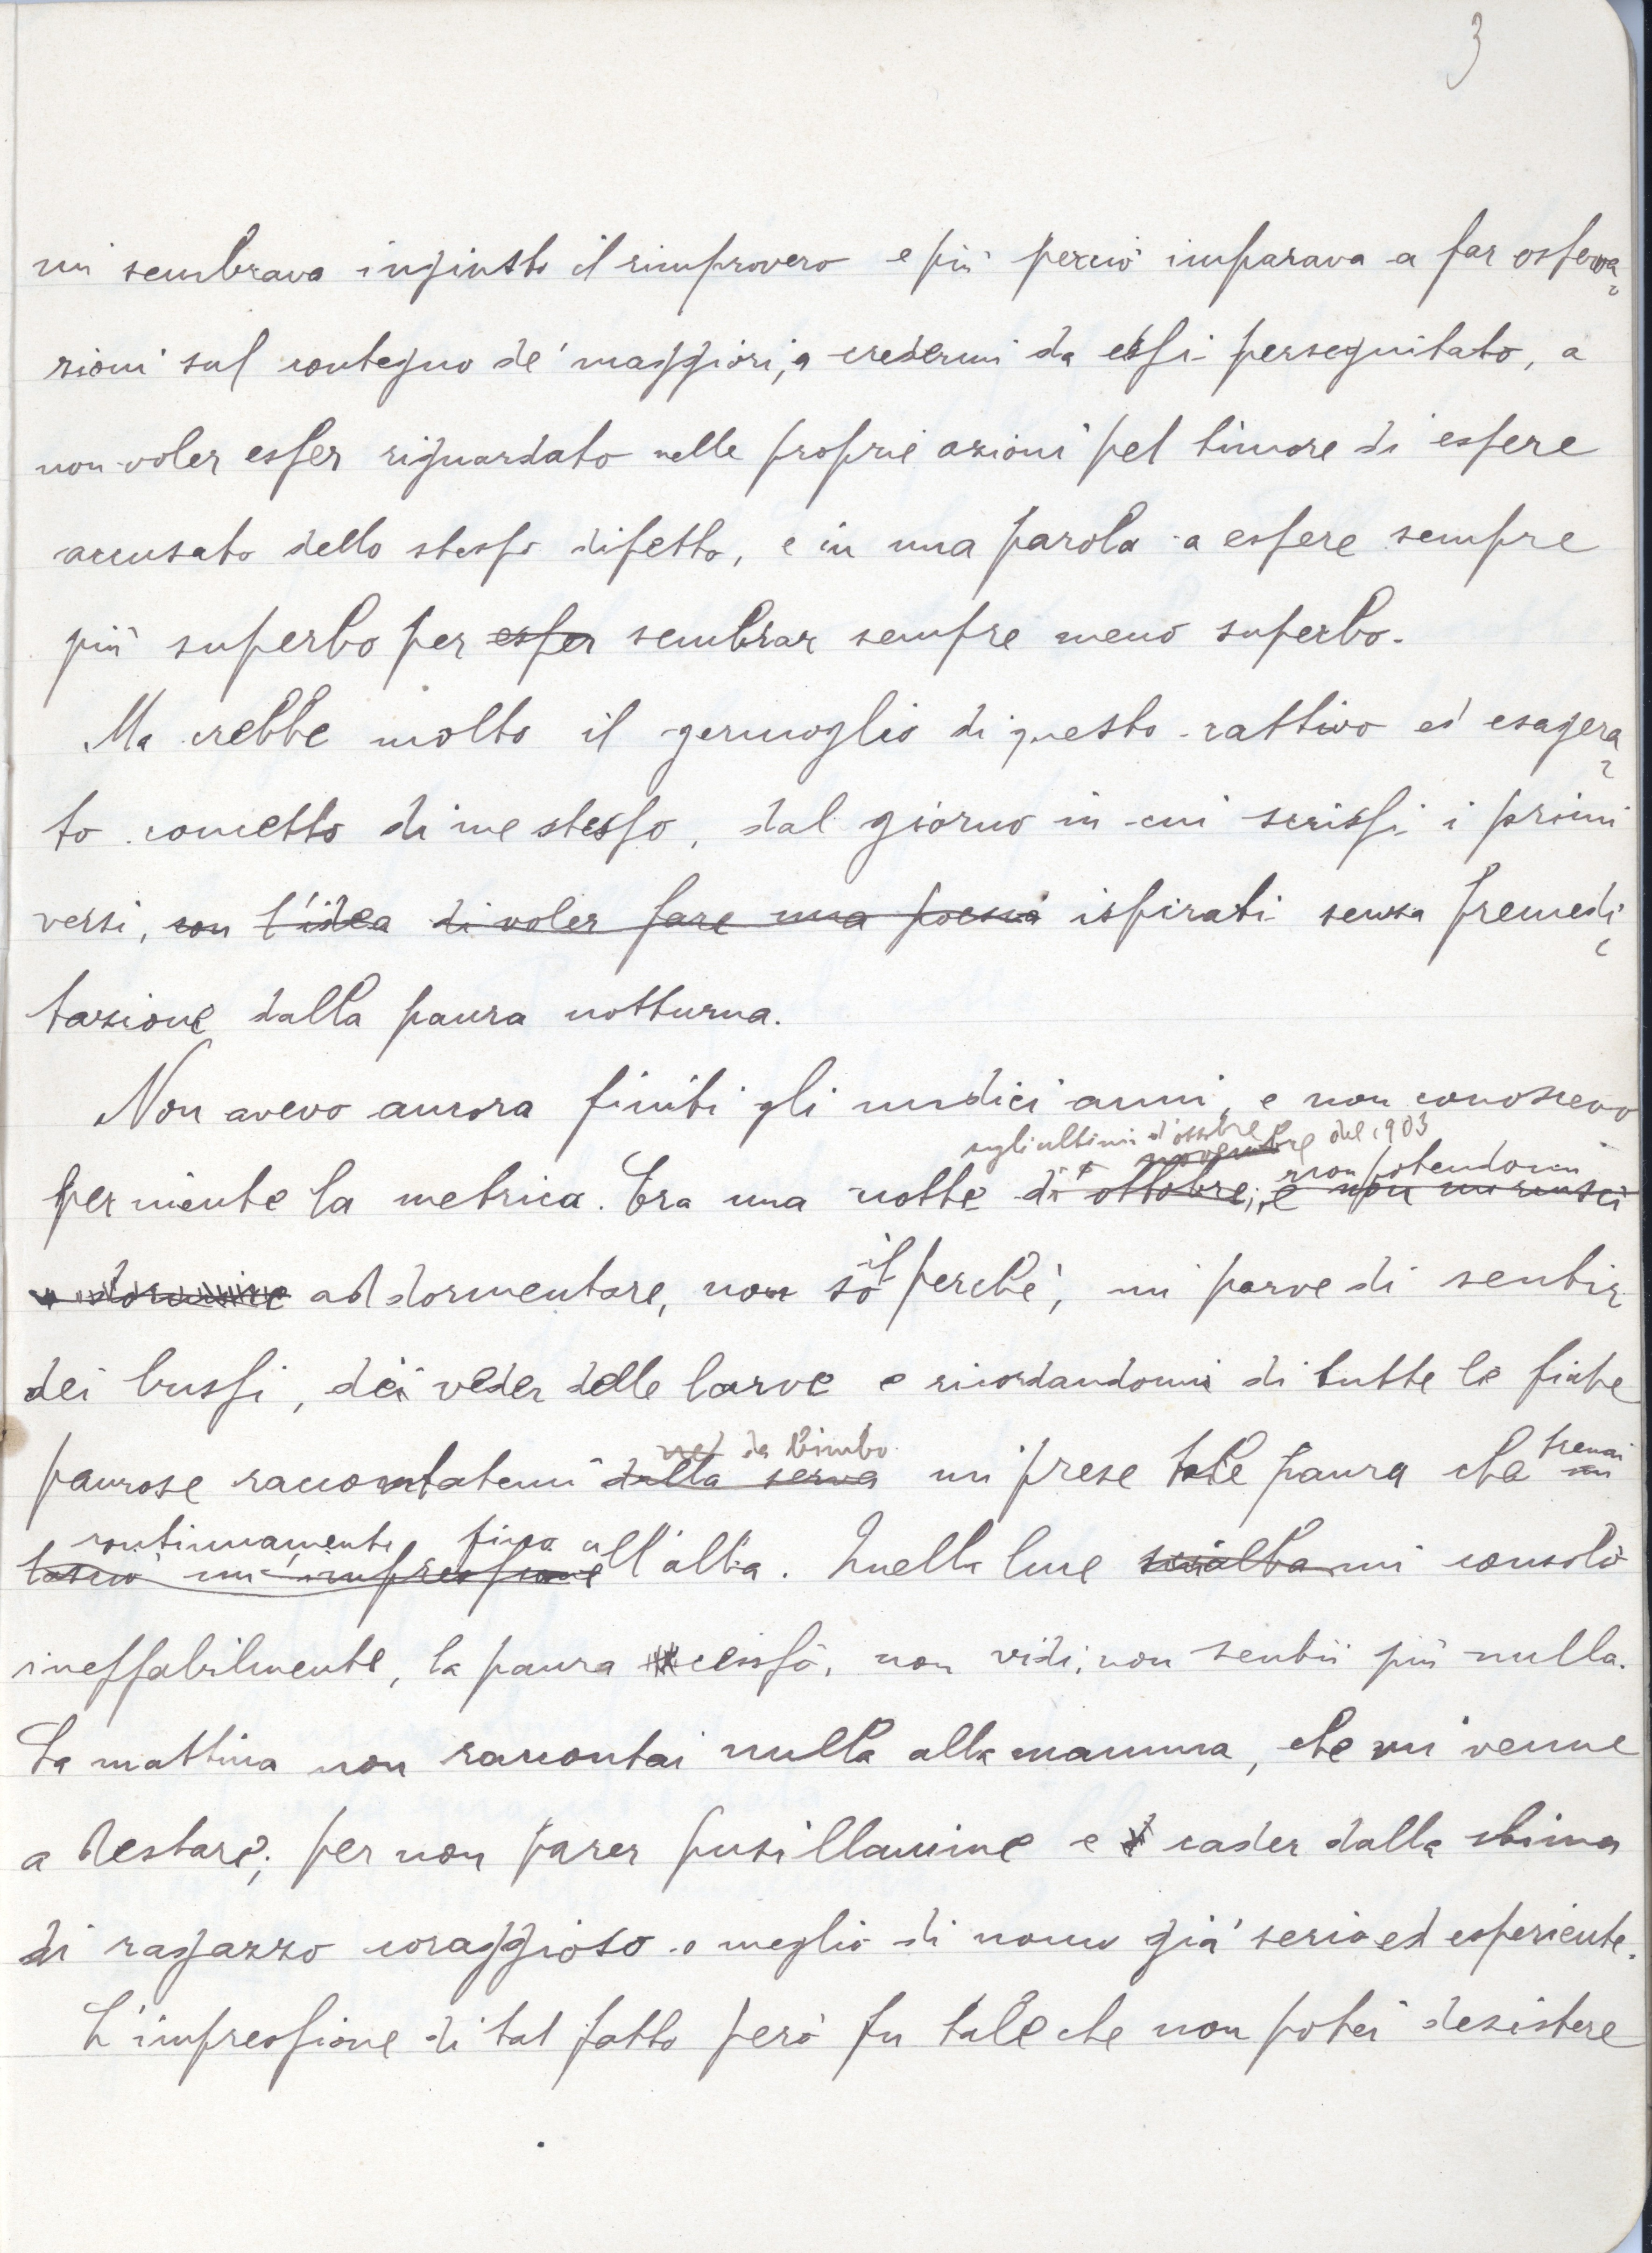 3
mi sembrava ingiusto il rimprovero e più perciò imparava a far osserva-
zioni sul contegno de' maggiori, a credermi da essi perseguitato, a
non voler esser riguardato nelle proprie azioni pel timore di essere
accusato dello stesso difetto, e in una parola a essere sempre
più superbo per esser sembrar sempre meno superbo.
Ma crebbe molto il germoglio di questo cattivo ed esagera-
to concetto di me stesso, dal giorno in cui scrissi i primi
versi, con l'idea di voler fare una poesia ispirati senza premedi-
tazione dalla paura notturna.
Non avevo ancora finiti gli undici anni, e non conoscevo
sugli ultimi d'ottobre novembre del 1903
non potendomi
per niente la metrica. Era una notte di ottobre; e non mi riuscì
a dormire addormentare, non so il perchè, mi parve di sentir
dei bussi, dei veder delle larve e ricordandomi di tutte le fiabe
da bimbo
paurose raccontatemi dalla serva mi prese tale paura che tremai mi
continuamente fino
lasciò un'impressione all'alba. Quella luce scialba mi consolò
ineffabilmente, la paura cessò, non vidi, non sentii più nulla.
La mattina non raccontai nulla alla mamma, che mi venne
a destare; per non parer pusillanime e cader dalla stima
di ragazzo coraggioso o meglio di uomo già serio ed esperiente.
L'impressione di tal fatto però fu tale che non potei desistere